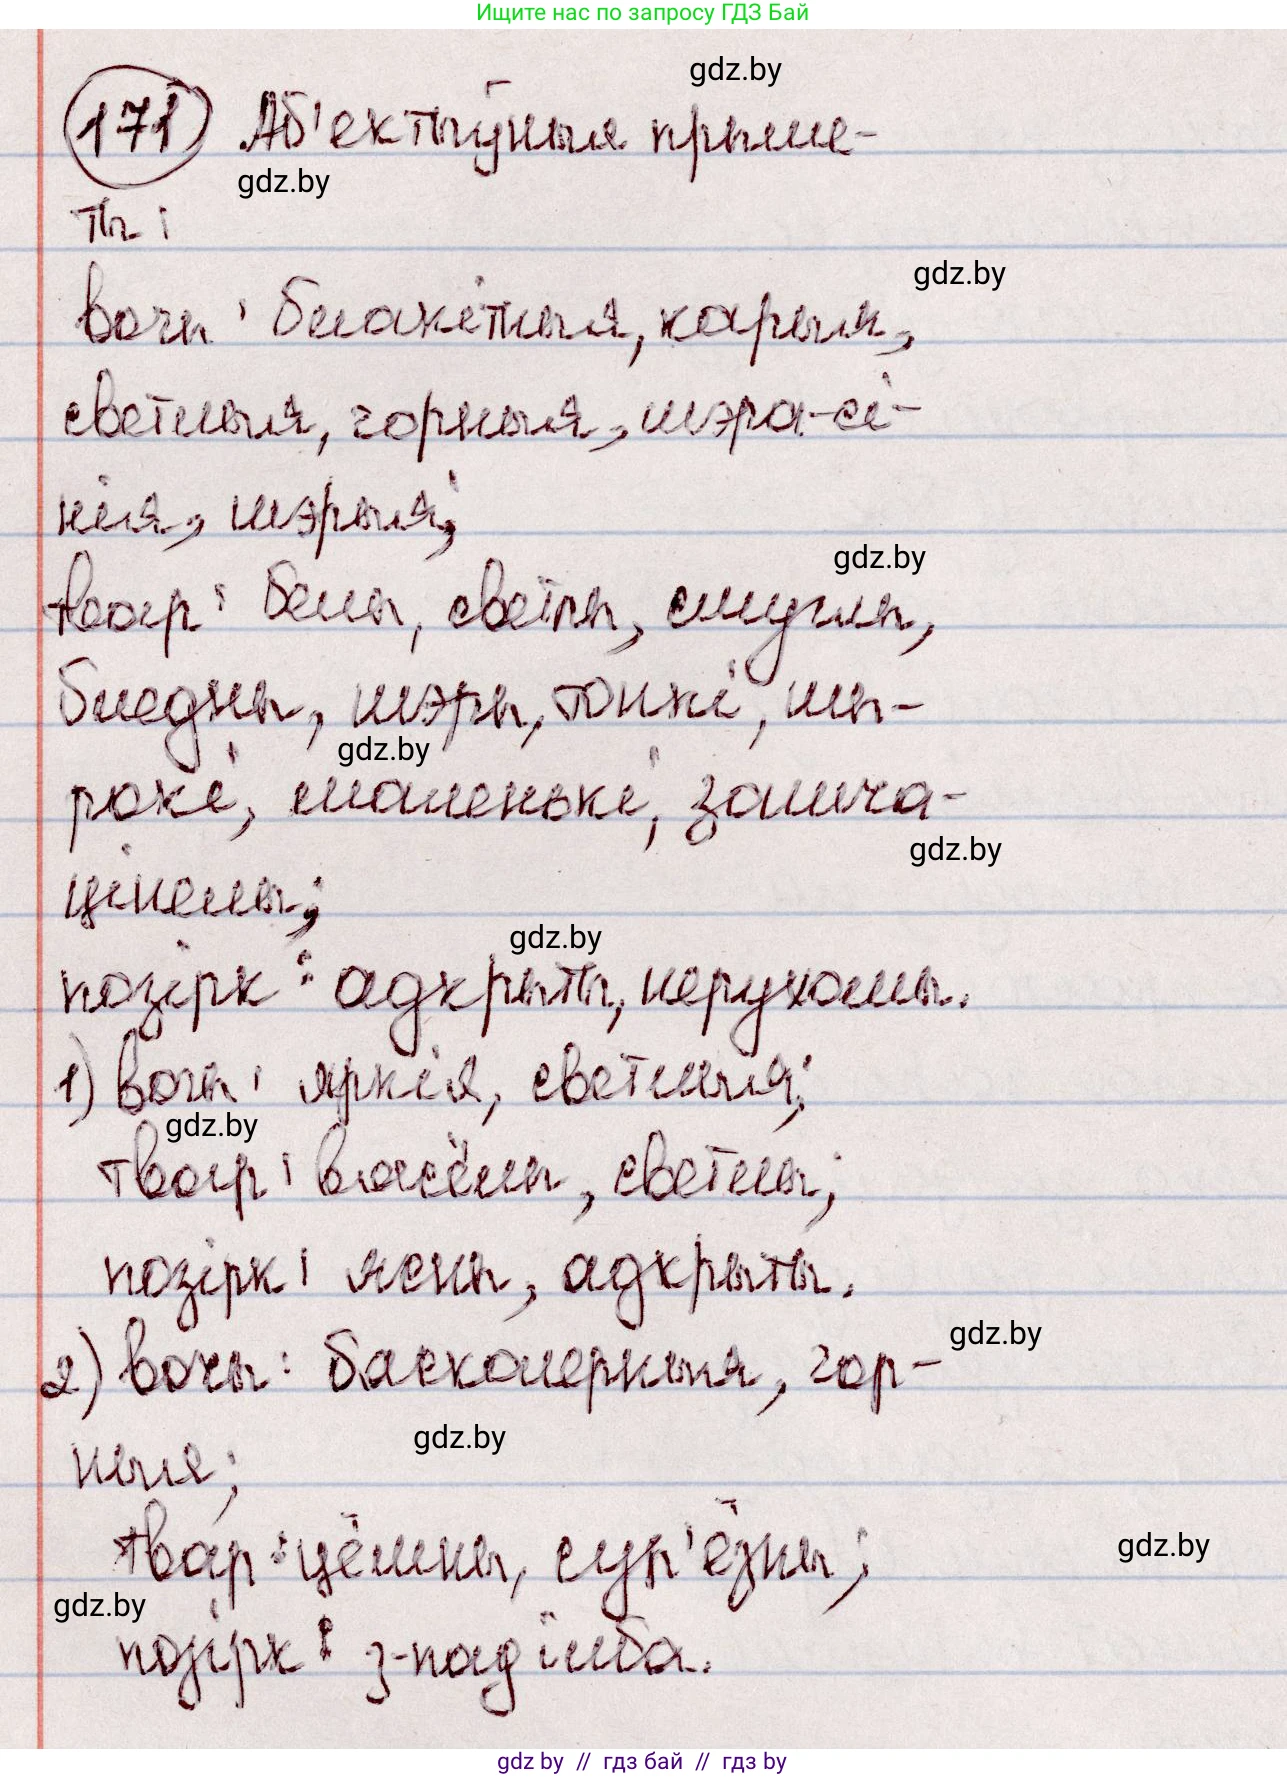 Ищите нас по запросу ГДЗ Бай
gdz.by
171 Аб'ектыўныя прыме-
gdz.by
ты:
gdz.by
вочы: блакітныя, карыя,
светлыя, чорныя, шэра-сі-
нія, шэрыя;
gdz.by
твар: белы, светлы, смуглы,
бледны, шэры, тонкі, шы-
gdz.by
рокі, маленькі, заплака-
gdz.by
gdz.by
позірк: адкрыты, нерухомы.
1) вочы: яркія, светлыя;
gdz.by
твар: вясёлы, светлы;
позірк: ясны, адкрыты.
gdz.by
2) вочы: бескалерныя, чор-
gdz.by
ныя;
твар: цёмны, сур'ёзны;
gdz.by
gdz.by
позірк: з-пад ілба.
gdz by // гдз бай // гдз by